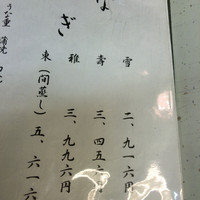 なぎ
雪 二、九一六円
壽 三、四五六円
雅 三、九九六円
東(間蒸し) 五、六一六
うな重 蒲焼